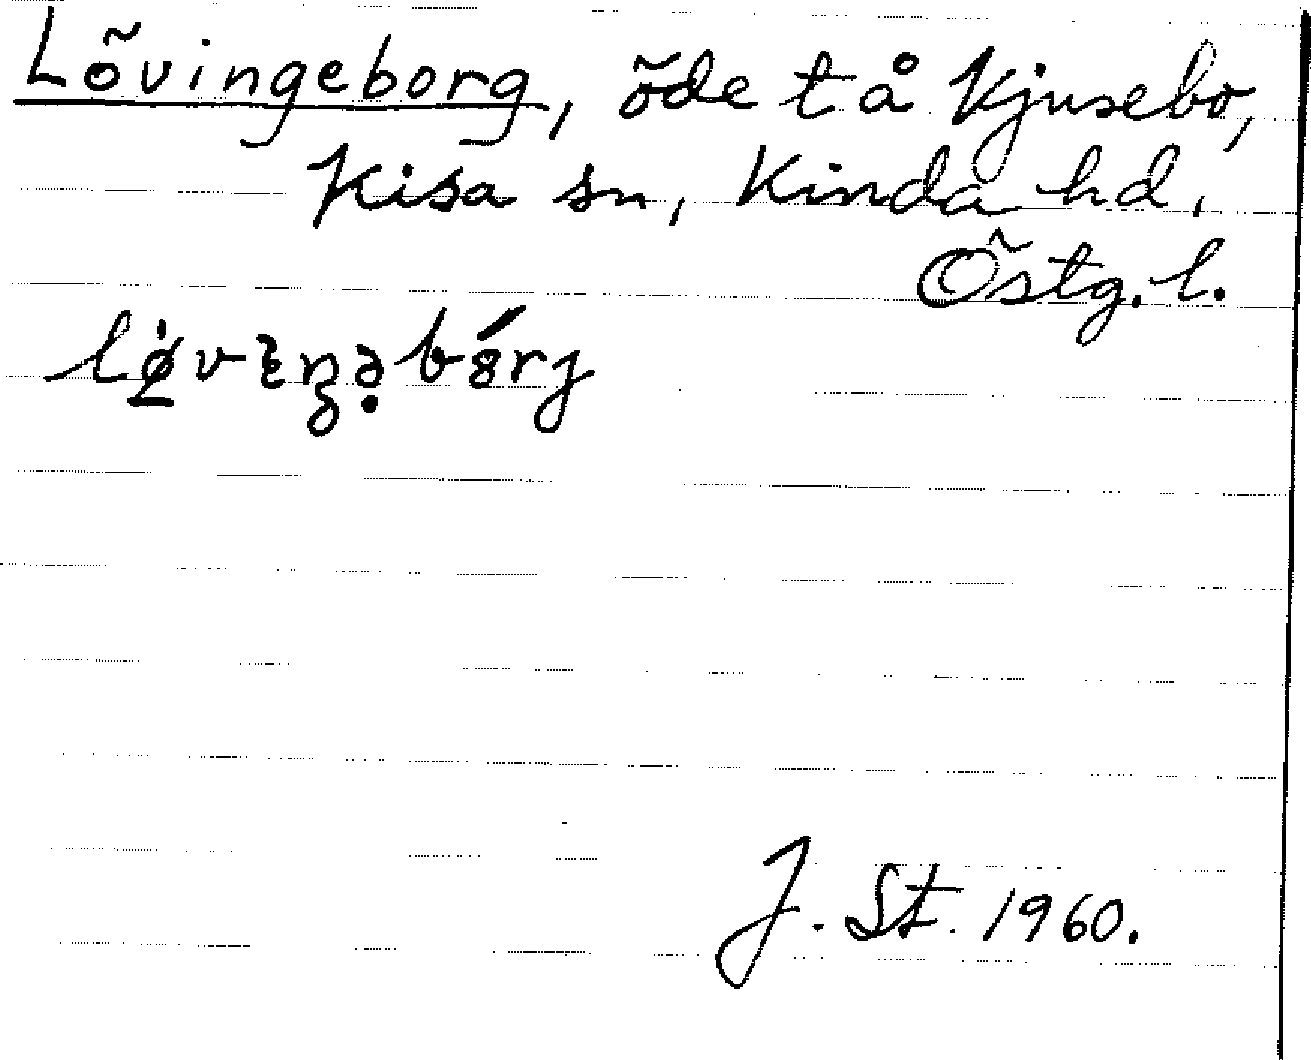 Lövingeborg, öde t å Kjusebo,
Kisa sn, Kinda hd,
Östg. l.
J. St. 1960.